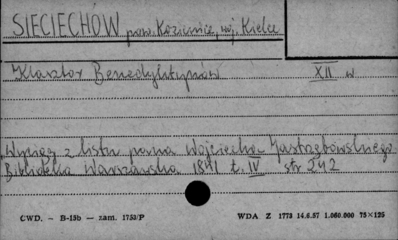 SIECIECHÓW pow. Kozienice, woj. Kielce
Klasztor Benedyktynów XII w
Wyciąg z listu pana Wojciecha Jastrzębowskiego
Biblioteka Warszawska 1841 t. IV str 242
CWD. — B-15b — zam. 1753/P WDA Z 1773 14.6.57 1.060.000 75×125